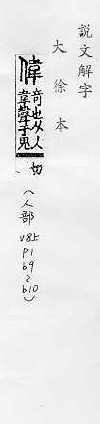 說文解字
大徐本
偉 奇也从人
韋聲于鬼
切
(人部
v8上
p1
b9
~
b10)